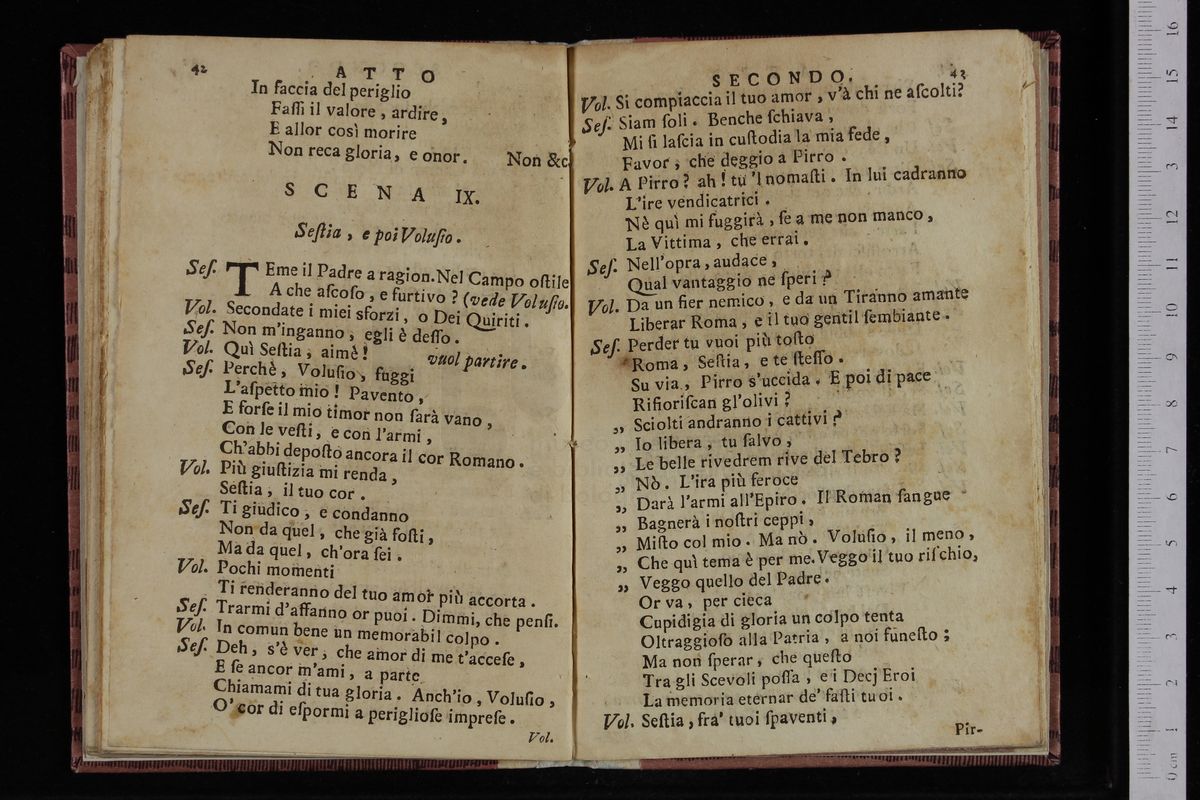 42
ATTO
In faccia del periglio
Faſſi il valore , ardire,
E allor così morire
Non reca gloria, e onor. Non &c.
SCENA IX.
Seſtia , e poi Voluſio.
Seſ. TEme il Padre a ragion. Nel Campo oſtile
A che aſcoſo , e furtivo ? (vede Voluſio.
Vol. Secondate i miei sforzi, o Dei Quiriti.
Seſ. Non m'inganno, egli è deſſo.
Vol. Quì Seſtia, aimè! vuol partire.
Seſ. Perchè, Voluſio, fuggi
L'aſpetto mio ! Pavento,
E forſe il mio timor non ſarà vano,
Con le veſti, e con l'armi,
Ch'abbi depoſto ancora il cor Romano.
Vol. Più giuſtizia mi renda,
Seſtia, il tuo cor.
Seſ. Ti giudico, e condanno
Non da quel, che già foſti,
Ma da quel, ch'ora ſei.
Vol. Pochi momenti
Ti renderanno del tuo amor più accorta.
Seſ. Trarmi d'affanno or puoi. Dimmi, che penſi.
Vol. In comun bene un memorabil colpo.
Seſ. Deh, s'è ver, che amor di me t'acceſe,
E ſe ancor m'ami, a parte
Chiamami di tua gloria. Anch'io, Voluſio,
O' cor di eſpormi a periglioſe impreſe.
Vol.
SECONDO. 43
Vol. Si compiaccia il tuo amor, v'à chi ne aſcolti?
Seſ. Siam ſoli. Benche ſchiava,
Mi ſi laſcia in cuſtodia la mia fede,
Favor, che deggio a Pirro.
Vol. A Pirro? ah! tu 'l nomaſti. In lui cadranno
L'ire vendicatrici.
Nè quì mi fuggirà, ſe a me non manco,
La Vittima, che errai.
Seſ. Nell'opra, audace,
Qual vantaggio ne ſperi?
Vol. Da un fier nemico, e da un Tiranno amante
Liberar Roma, e il tuo gentil ſembiante.
Seſ. Perder tu vuoi più toſto
Roma, Seſtia, e te ſteſſo.
Su via, Pirro s'uccida. E poi di pace
Rifioriſcan gl'olivi?
„ Sciolti andranno i cattivi?
„ Io libera, tu ſalvo,
„ Le belle rivedrem rive del Tebro?
„ Nò. L'ira più feroce
„ Darà l'armi all'Epiro. Il Roman ſangue
„ Bagnerà i noſtri ceppi,
„ Miſto col mio. Ma nò. Voluſio, il meno,
„ Che quì tema è per me. Veggo il tuo riſchio,
„ Veggo quello del Padre.
Or va, per cieca
Cupidigia di gloria un colpo tenta
Oltraggioſo alla Patria, a noi funeſto;
Ma non ſperar, che queſto
Tra gli Scevoli poſſa, e i Decj Eroi
La memoria eternar de' faſti tuoi.
Vol. Seſtia, fra' tuoi ſpaventi,
Pir-
0 cm 1 2 3 4 5 6 7 8 9 10 11 12 13 14 15 16